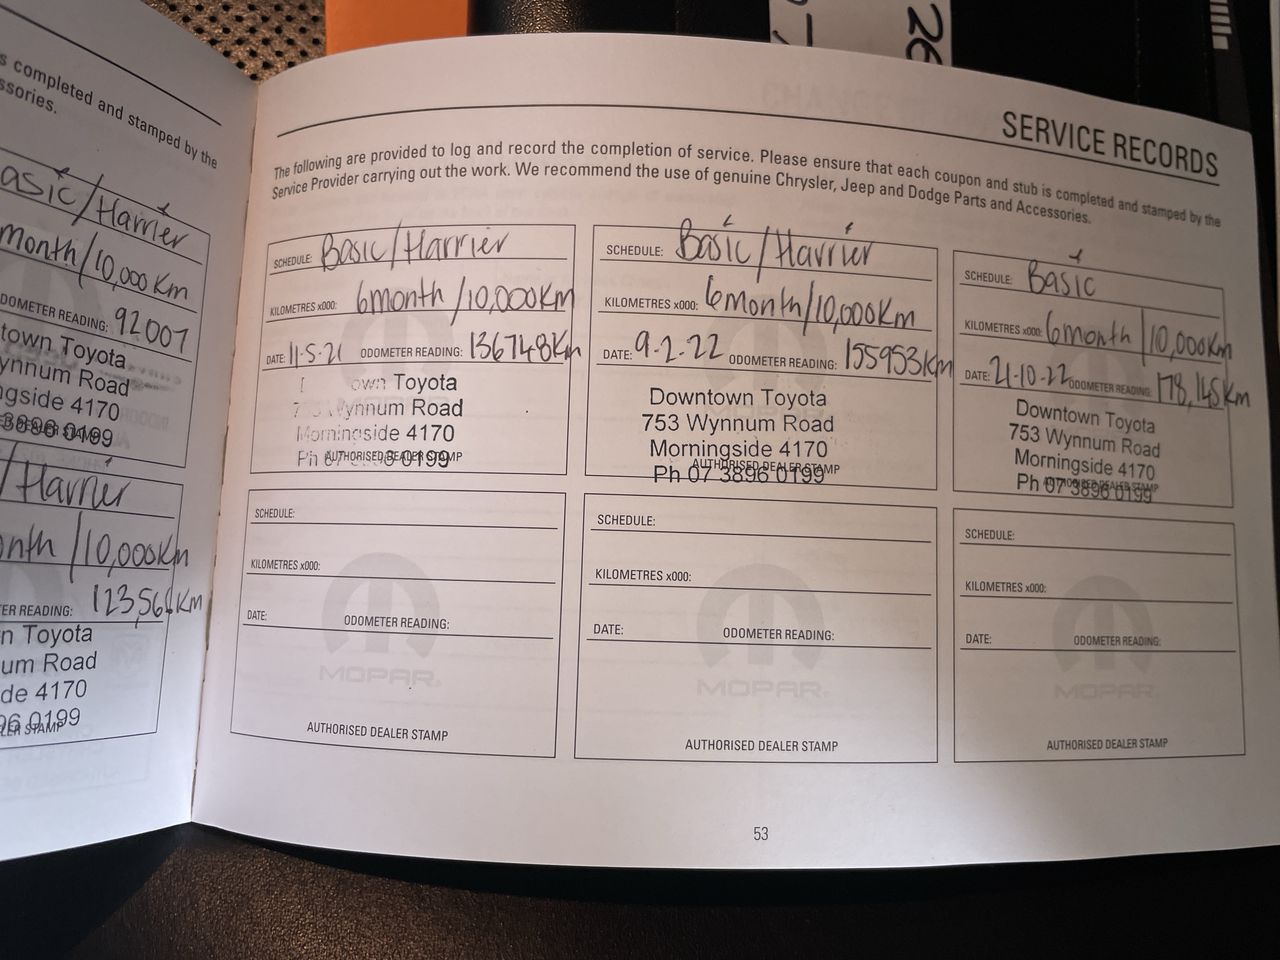 s completed and stamped by the
ssories.
asic/Harrier
month/10,000Km
DOMETER READING: 92007
town Toyota
ynnum Road
ngside 4170
3896 0199
/Harrier
onth/10,000Km
ER READING: 123,568Km
n Toyota
um Road
de 4170
96 0199
LER STAMP
26
SERVICE RECORDS
The following are provided to log and record the completion of service. Please ensure that each coupon and stub is completed and stamped by the
Service Provider carrying out the work. We recommend the use of genuine Chrysler, Jeep and Dodge Parts and Accessories.
SCHEDULE: Basic/Harrier
KILOMETRES x000: 6month/10,000Km
DATE: 11-5-21 ODOMETER READING: 136748Km
own Toyota
Wynnum Road
Morningside 4170
AUTHORISED DEALER STAMP
Ph 0199
SCHEDULE: Basic/Harrier
KILOMETRES x000: 6month/10,000Km
DATE: 9-2-22 ODOMETER READING: 155953Km
Downtown Toyota
753 Wynnum Road
Morningside 4170
AUTHORISED DEALER STAMP
Ph 07 3896 0199
SCHEDULE: Basic
KILOMETRES x000: 6month/10,000Km
DATE: 21-10-22 ODOMETER READING: 178,145Km
Downtown Toyota
753 Wynnum Road
Morningside 4170
AUTHORISED DEALER STAMP
Ph 07 3896 0199
SCHEDULE:
KILOMETRES x000:
DATE: ODOMETER READING:
MOPAR
AUTHORISED DEALER STAMP
SCHEDULE:
KILOMETRES x000:
DATE: ODOMETER READING:
MOPAR
AUTHORISED DEALER STAMP
SCHEDULE:
KILOMETRES x000:
DATE: ODOMETER READING:
MOPAR
AUTHORISED DEALER STAMP
53